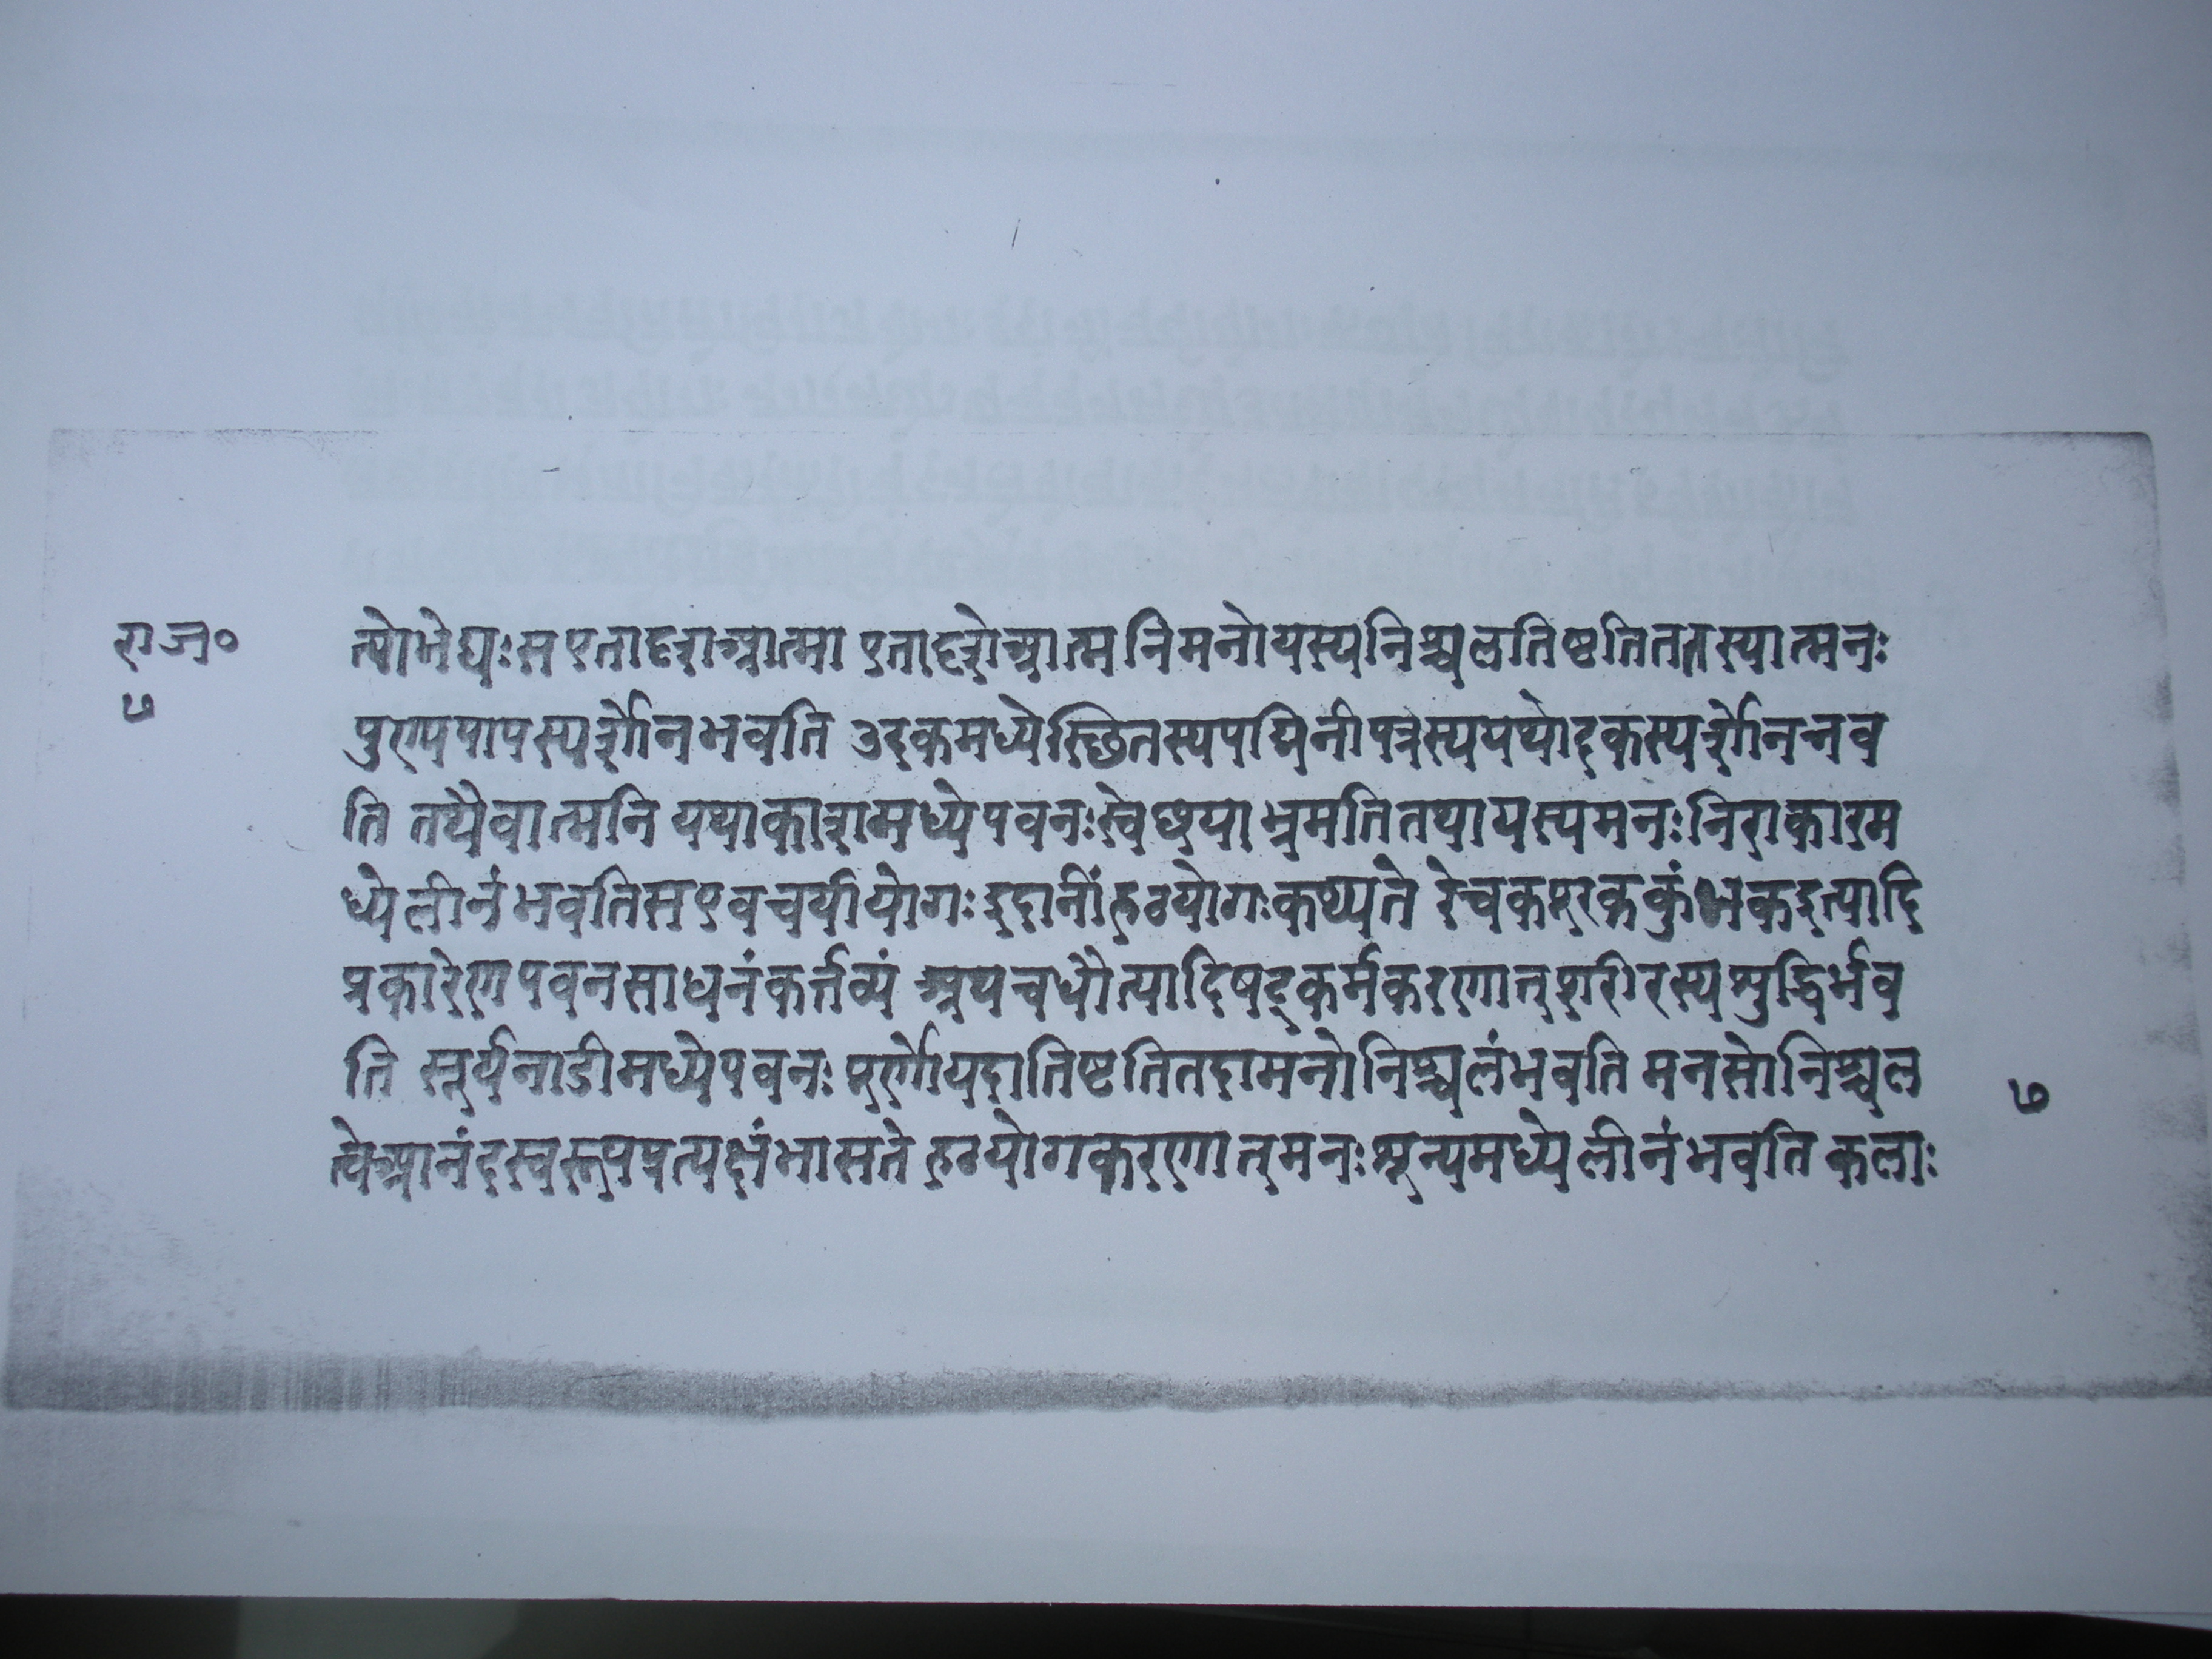 राज०
७
त्योभेद्यःसएतादृशआत्मा एतादृशोआत्मनिमनोयस्यनिश्चलतिष्ठतिततस्यात्मनः
पुण्यपापस्पर्शोनभवति उदकमध्येस्छितस्यपद्मिनीपत्रस्ययथोदकस्पर्शोनभव
ति तथैवात्मनि यथाकाशमध्येपवनःस्वेछयाभ्रमतितथायस्यमनःनिराकारम
ध्येलीनंभवतिसएवचर्यीयोगःइदानींहठयोगःकथ्यते रेचकपूरककुंभकइत्यादि
प्रकारेणपवनसाधनंकर्त्तव्यं अथचधौत्यादिषट्कर्मकरणात्शरीरस्यशुद्धिर्भव
ति सूर्यनाडीमध्येपवनः पूर्णोयदातिष्टतितदामनोनिश्चलंभवति मनसोनिश्चल
त्वेआनंदस्वरूपप्रत्यक्षंभासते हठयोगकरणात्मनःशून्यमध्येलीनंभवति कलाः
७